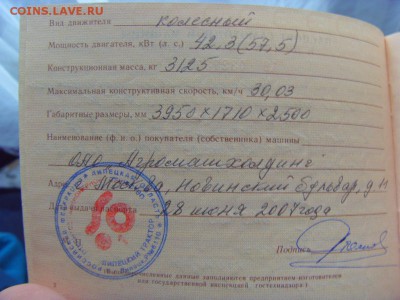 COINS.LAVE.RU
Вид двигателя колесный
Мощность двигателя, кВт (л. с.) 42,3(57,5)
Конструкционная масса, кг 3125
Максимальная конструктивная скорость, км/ч 30,03
Габаритные размеры, мм 3950×1710×2500
Наименование (ф. и. о.) покупателя (собственника) машины
ОАО Агромашхолдинг
Адрес Москва, Новинский бульвар, д.11
Дата выдачи паспорта 28 июня 2007 года
10
ЛИПЕЦКИЙ ТРАКТОР
Подпись
данные заполняются предприятием-изготовителем
или государственной инспекцией гостехнадзора